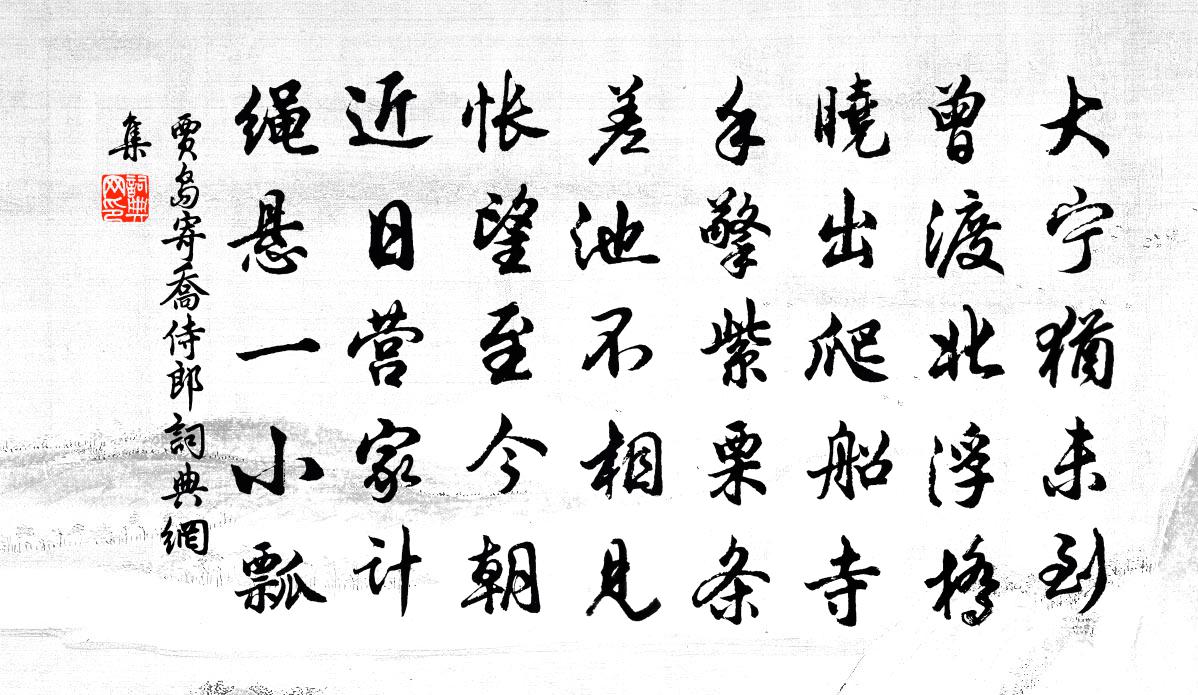 大宁犹未到
曾渡北浮桥
晓出爬船寺
手擎紫栗条
差池不相见
怅望至今朝
近日营家计
绳悬一小瓢
贾岛寄喬侍郎詞典網
集
詞典
网印